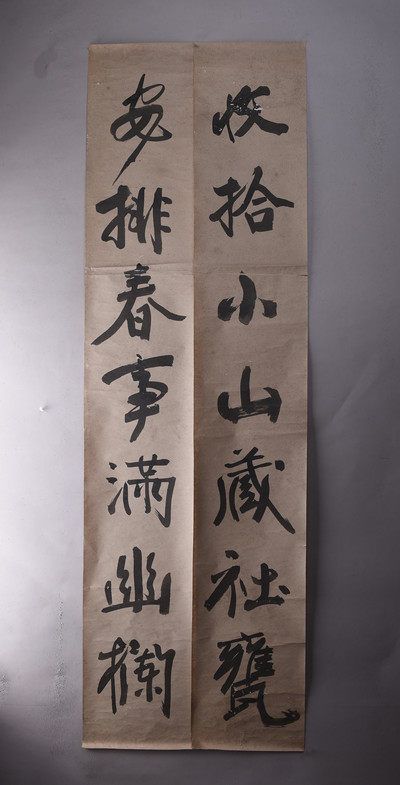 收拾小山藏社甕
安排春事滿幽欄